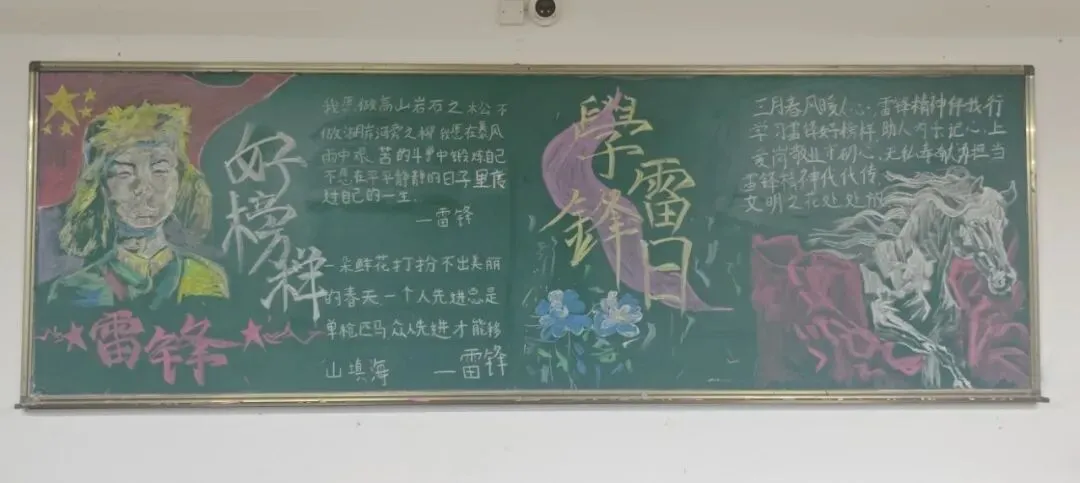 好榜样
雷锋
我愿做高山岩石之松不
做湖岸河旁之柳我愿在暴风
雨中艰苦的斗争中锻炼自己
不愿在平平静静的日子里度
过自己的一生.
一雷锋
一朵鲜花打扮不出美丽
的春天一个人先进总是
单枪匹马众人先进才能移
山填海 一雷锋
學雷
鋒日
三月春风暖人心,雷锋精神伴我行
学习雷锋好榜样 助人为乐记心上
爱岗敬业守初心,无私奉献勇担当
雷锋精神代代传
文明之花处处